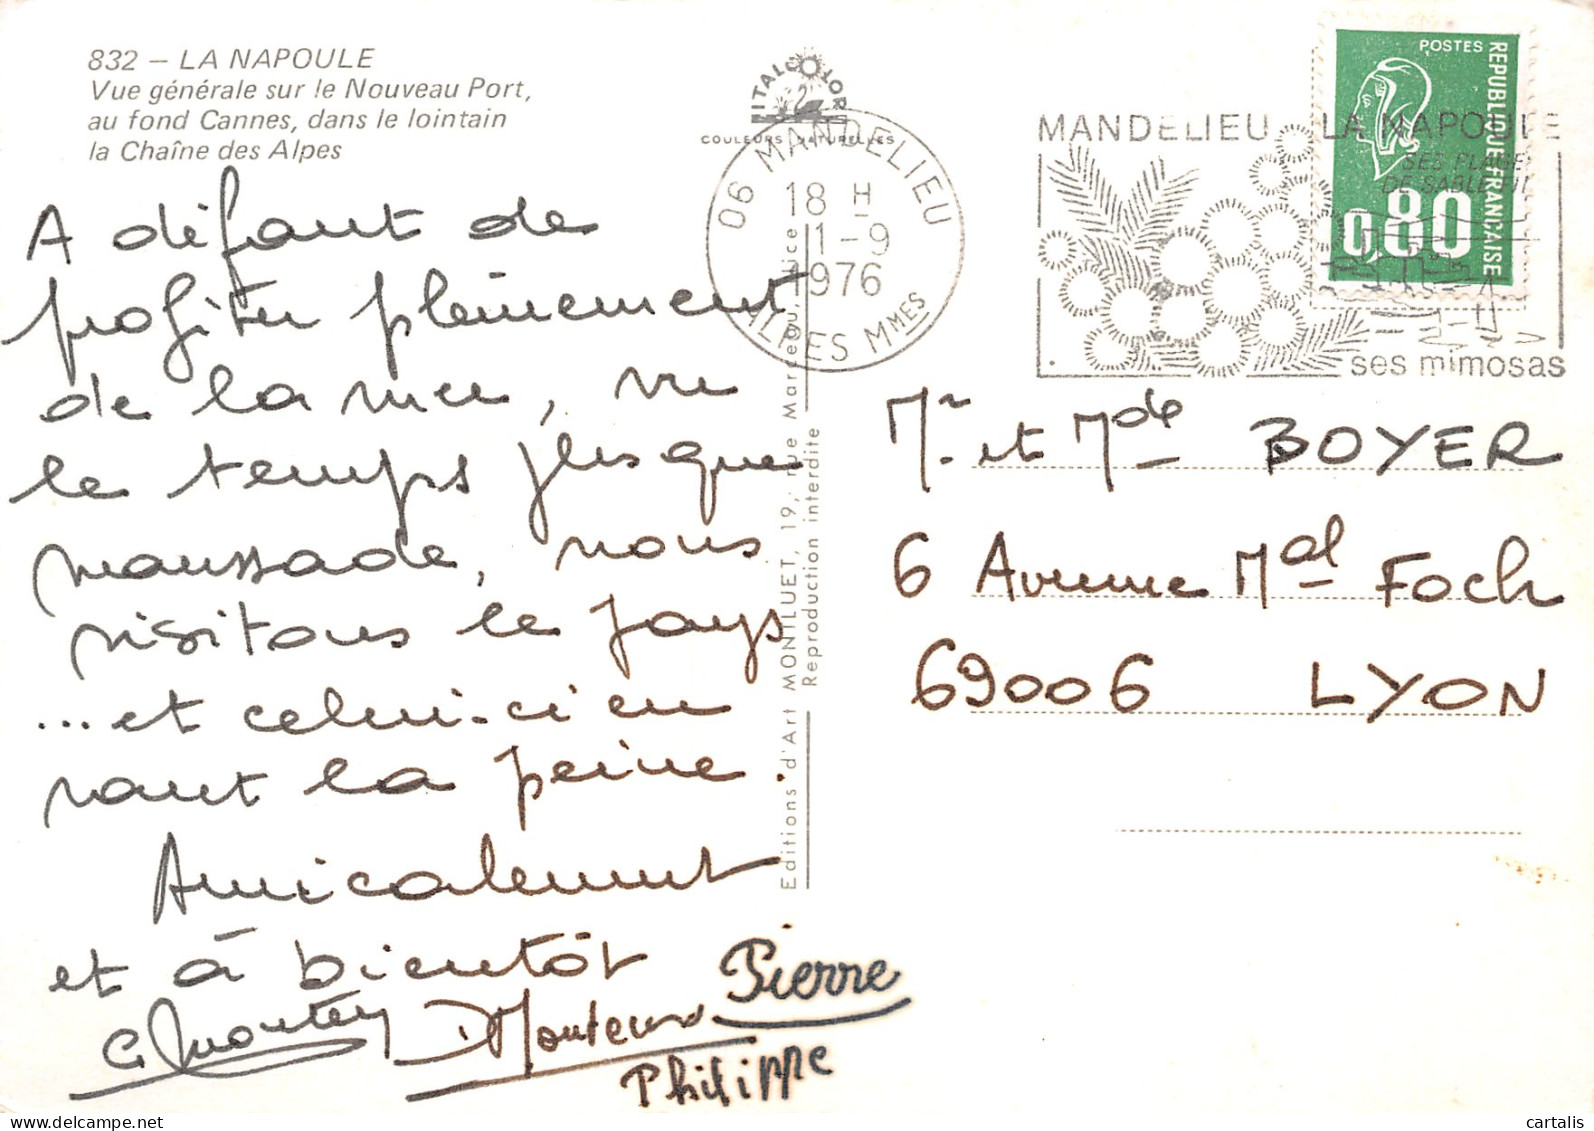 832 – LA NAPOULE
Vue générale sur le Nouveau Port,
au fond Cannes, dans le lointain
la Chaîne des Alpes
A défaut de
profiter pleinement
de la mer, vu
le temps plus que
maussade, nous
visitons le pays
... et celui-ci en
vaut la peine.
Amicalement
et à bientôt
Pierre
Philippe
ITALCOLOR
COULEURS NATURELLES
06 MANDELIEU
18 H
1-9
1976
ALPES MMES
Editions d'Art MONTLUET, 19, rue
Reproduction interdite
MANDELIEU LA NAPOULE
SES PLAGES
DE SABLE
ses mimosas
POSTES
REPUBLIQUE FRANÇAISE
0,80
Mr et Mde BOYER
6 Avenue Mal Foch
69006 LYON
cartalis
delcampe.net